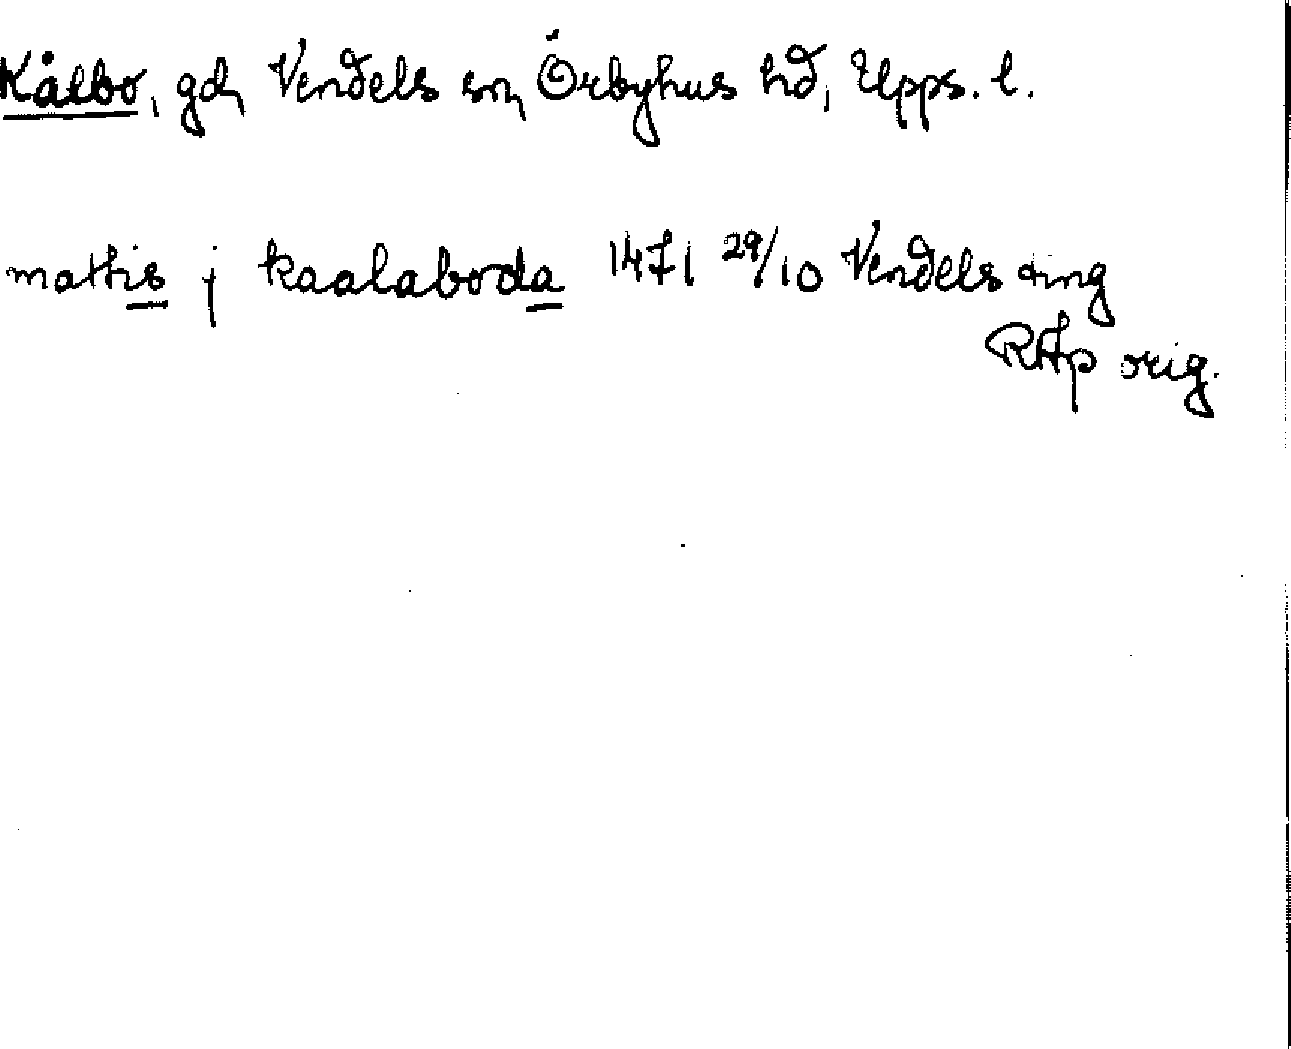 Kålbo, gd, Vendels sn, Örbyhus hd, Upps. l.
mattis j kaalaboda 1471 29/10 Vendels ting
RAp orig.